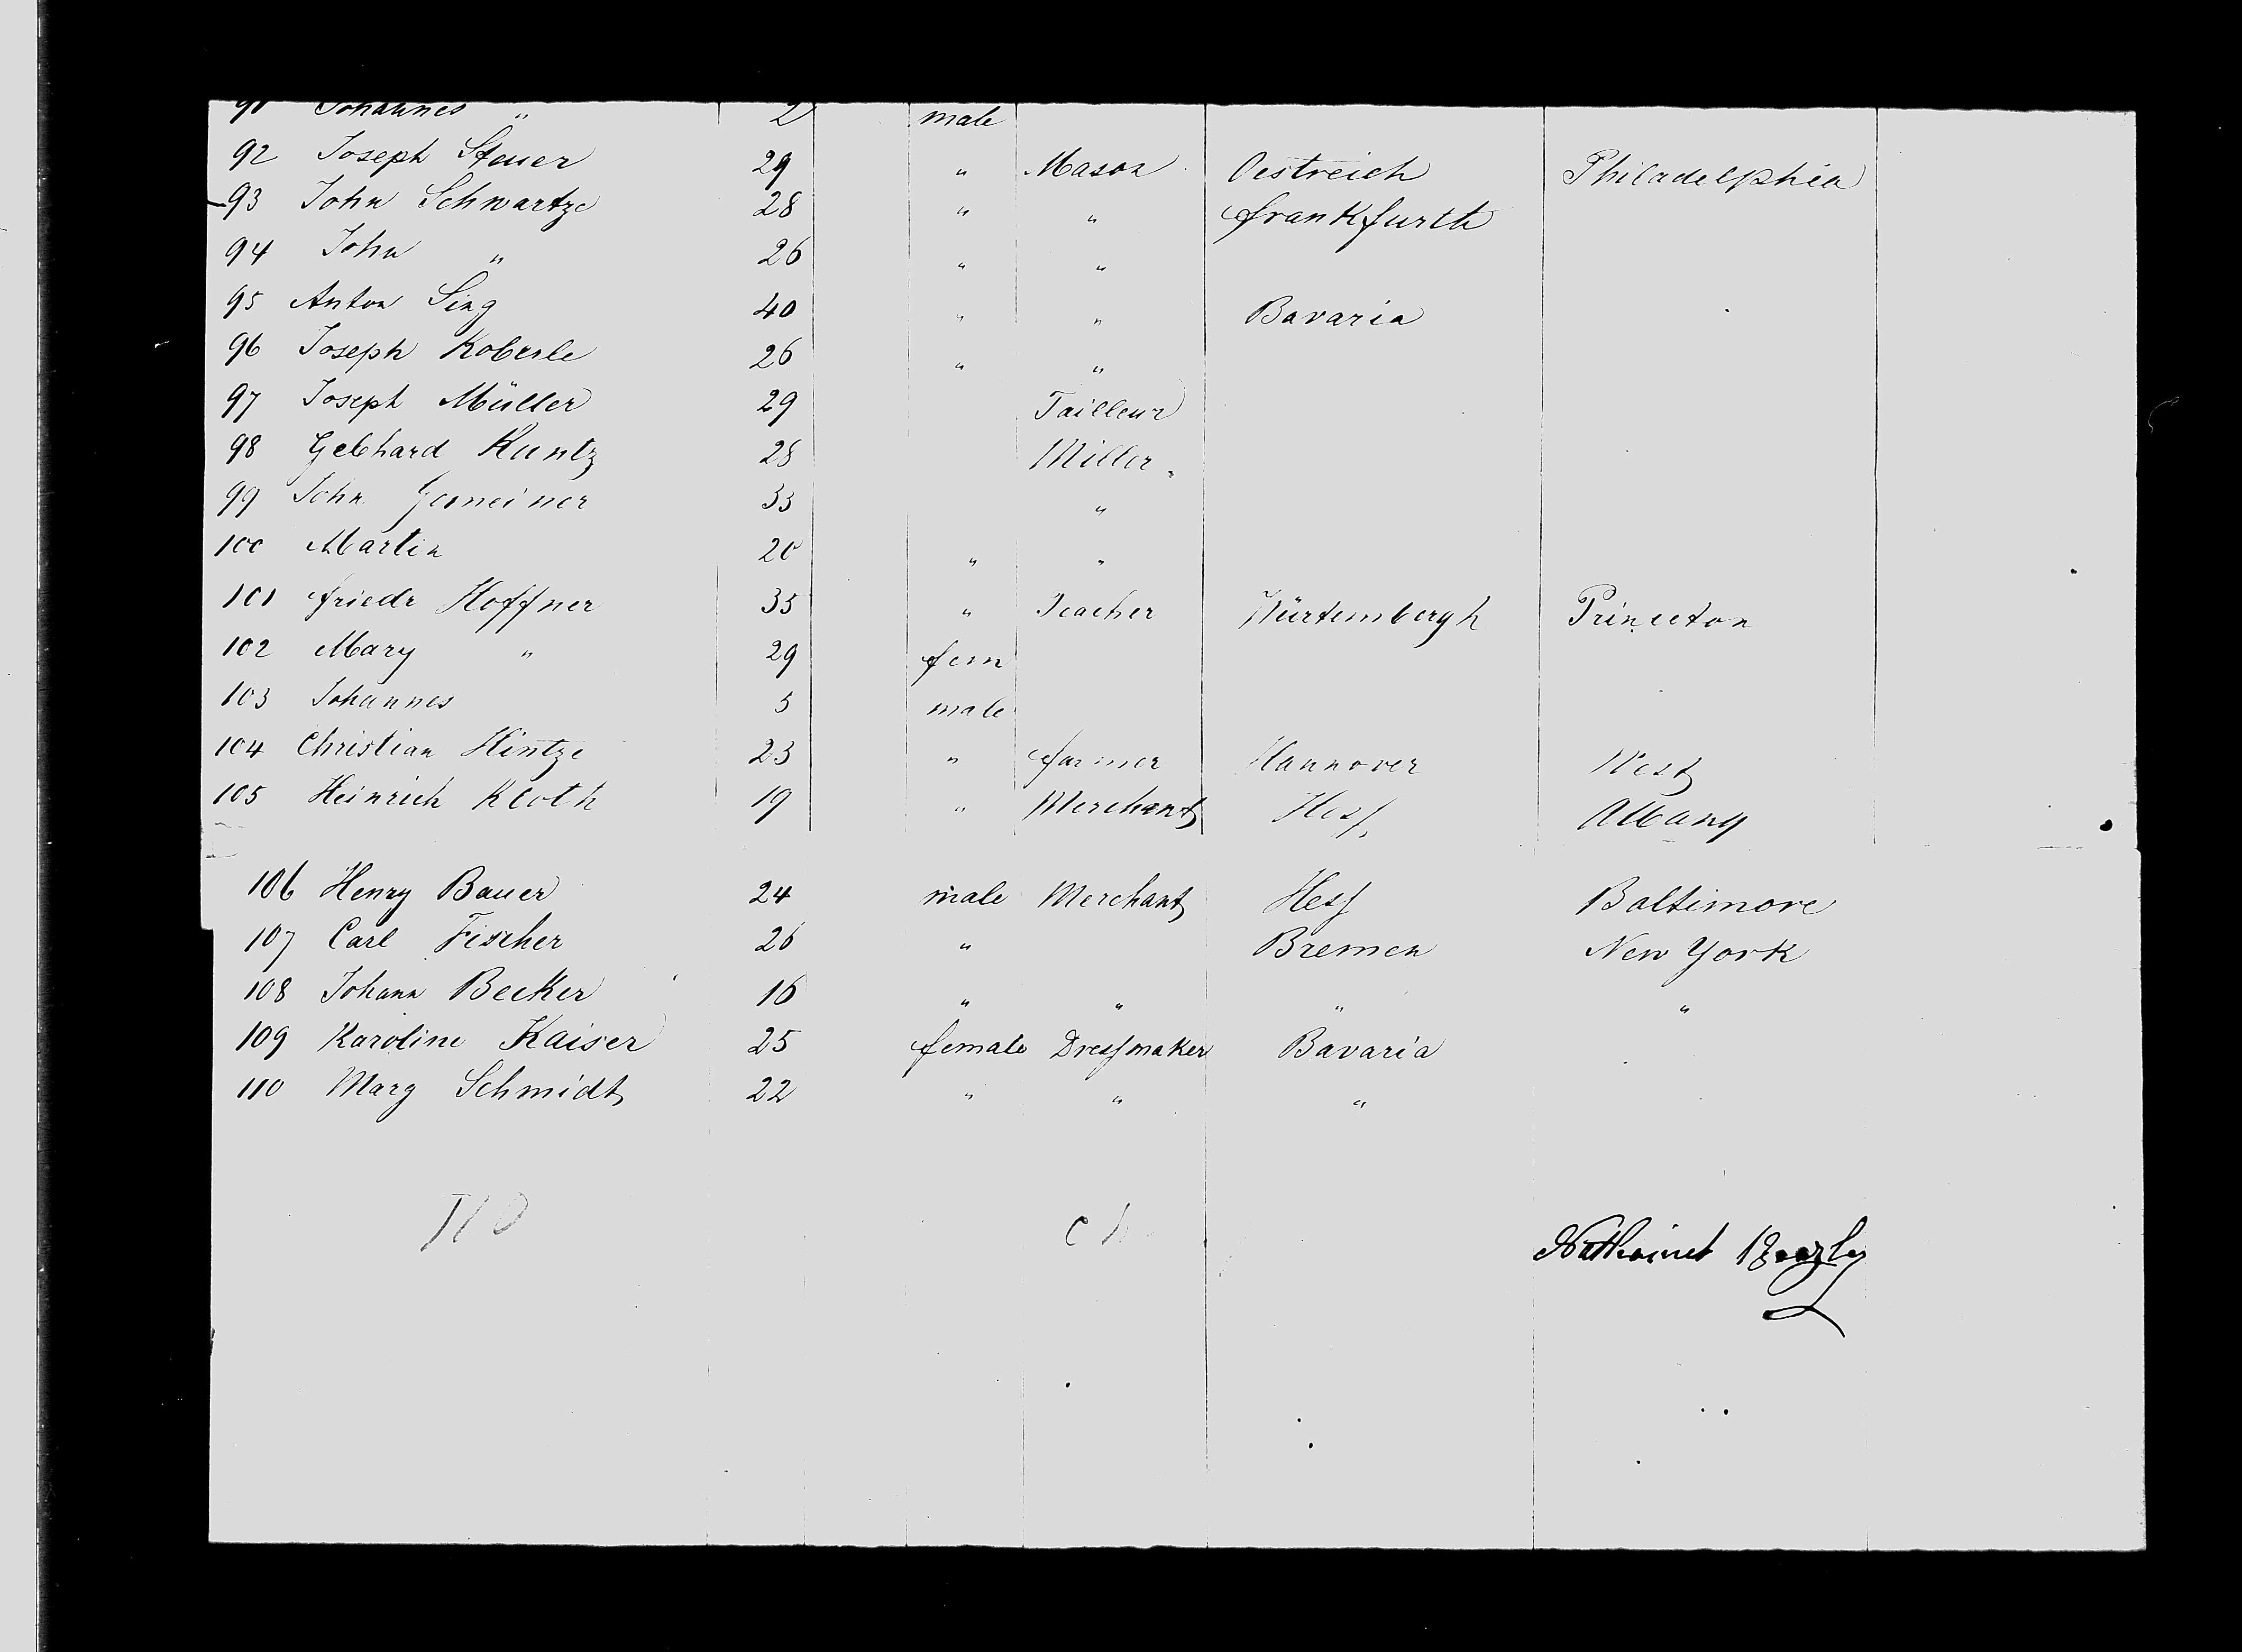 91 Johannes " 2 male
92 Joseph Steuer 29 " Mason Oestreich Philadelphia
93 John Schwartze 28 " " Frankfurth
94 John " 26 " "
95 Anton Sing 40 " " Bavaria
96 Joseph Koberle 26 " "
97 Joseph Müller 29 Tailleur
98 Gebhard Kuntz 28 Miller "
99 John Gemeiner 33 "
100 Martin 20 " "
101 Friedr Hoffner 35 " Teacher Würtembergh Princeton
102 Mary " 29 fem
103 Johannes 5 male
104 Christian Hintze 23 " farmer Hannover West
105 Heinrich Kloth 19 " Merchant Hess Albany
106 Henry Bauer 24 male Merchant Hess Baltimore
107 Carl Fischer 26 " Bremen New York
108 Johann Becker 16 " " " "
109 Karoline Kaiser 25 female Dressmaker Bavaria
110 Marg Schmidt 22 " " "
110